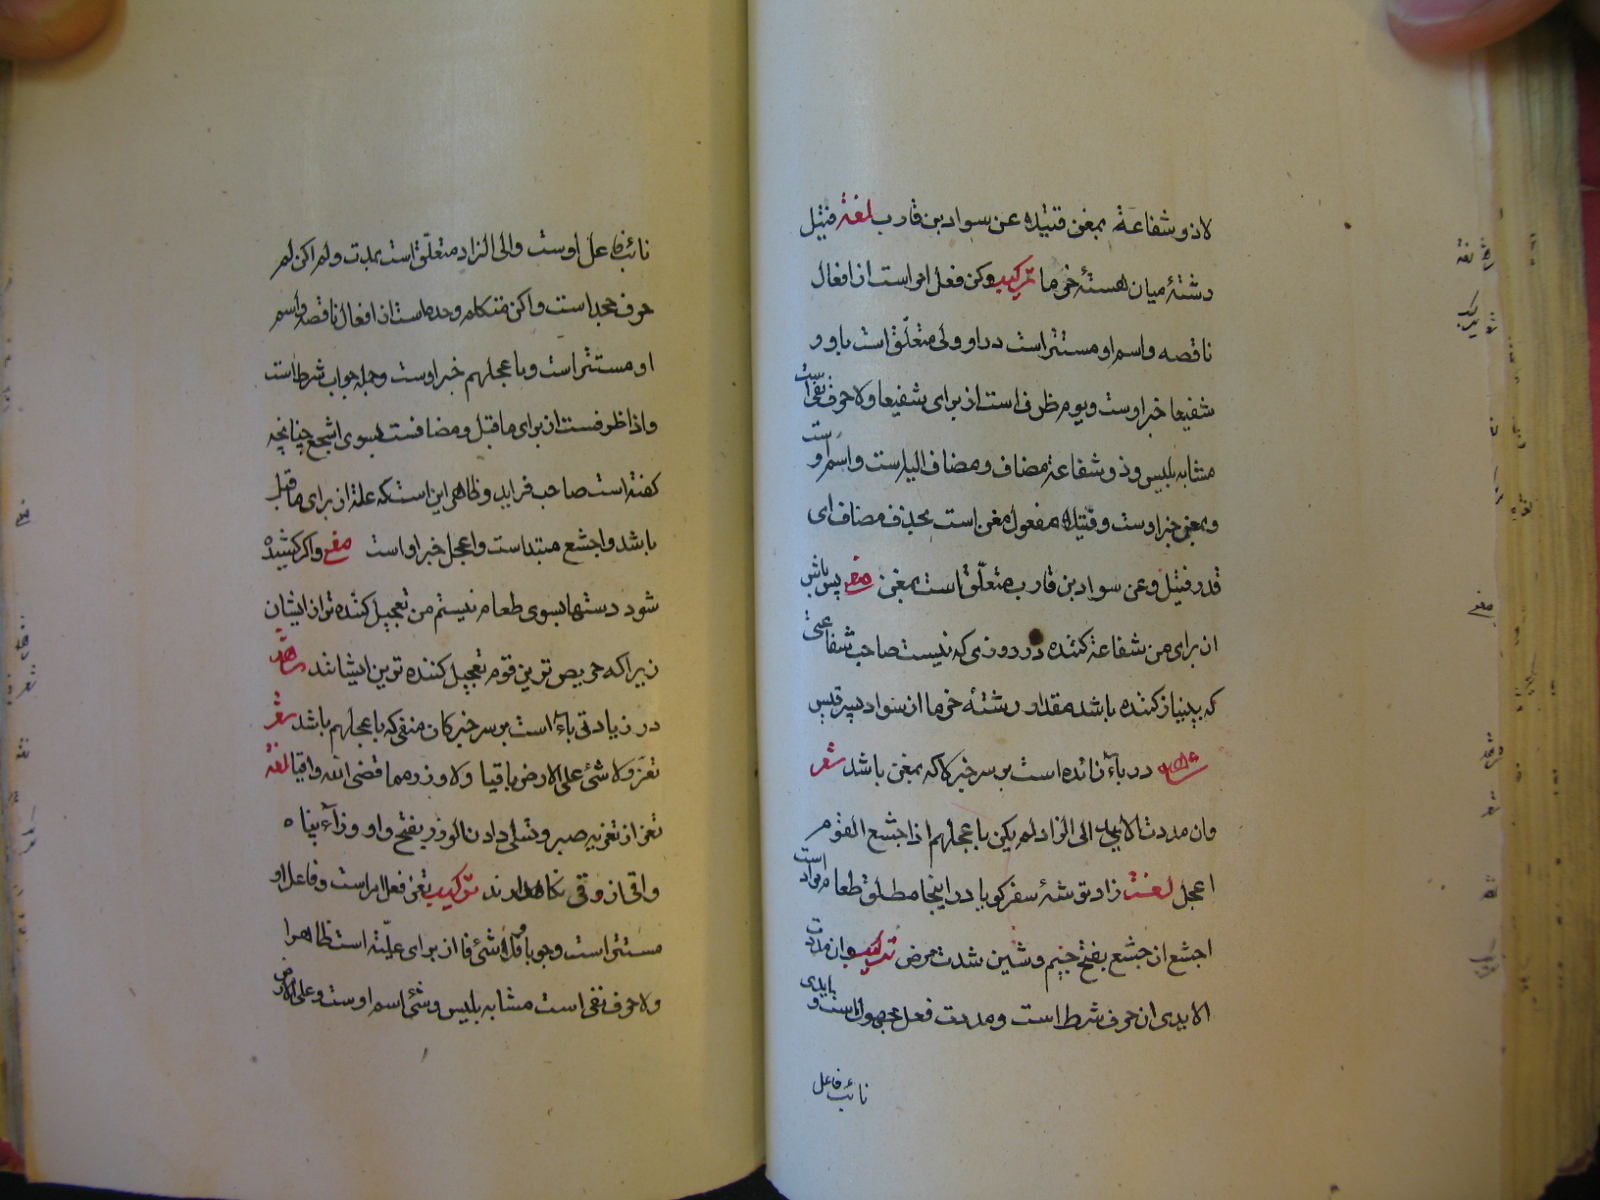 لا ذو شفاعة بمغن فتیلا عن سواد بن قارب لغة فتیل
رشتهٔ میان هستهٔ خرما ترکیب وکن فعل امر است از افعال
ناقصه و اسم او مستتر است در او و لی متعلّق است باو و
شفیعا خبر اوست و یوم ظرف است از برای شفیعا و لا حرف نفی است
مشابه بلیس و ذو شفاعة مضاف و مضاف الیه است و اسم او
و بمغن خبر اوست و فتیلا مفعول مغن است بحذف مضاف ای
قدر فتیل و عن سواد بن قارب متعلّق است بمغن معنی پس باش
از برای من شفاعة کننده در روزی که نیست صاحب شفاعتی
که بینیاز کننده باشد مقدار رشتهٔ خرما از سواد پسر قیس
شاهد در باء زائده است بر سر خبر لا که بمغن باشد شعر
وان مدت الایدی الی الزاد لم یکن باعجلهم اذا جشع القوم
اعجل لغت زاد توشهٔ سفر کویا در اینجا مطلق طعام مراد است
اجشع از جشع بفتح جیم و شین شدت حرص ترکیب وان مدت
الایدی ان حرف شرط است و مدت فعل مجهول است و ایدی
نائب فاعل
نائب فاعل اوست والی الزاد متعلّق است بمدت و لم اکن لم
حرف جحد است و اکن متکلم وحده است از افعال ناقصه و اسم
او مستتر است و باعجلهم خبر اوست و جمله جواب شرط است
و اذ ظرفست از برای ماقبل و مضافست بسوی اجشع چنانچه
کفته است صاحب فراید و ظاهر این است که علة از برای ماقبل
باشد و اجشع مبتداست و اعجل خبر او است معنی و اکر کشیده
شود دستها بسوی طعام نیستم من تعجیل کننده تر از ایشان
زیرا که حریص ترین قوم تعجیل کننده ترین ایشانند شاهد
در زیادتی باء است بر سر خبر کان منفی که باعجلهم باشد شعر
تعزّ ولا شئ علی الارض باقیا ولا وزر مما قضی الله واقیا لغة
تعز از تعزیه صبر و تسلی دادن الوزر بفتح واو و زاء پناه
واقی از وقی نکاهدارند ترکیب تعز فعل امر است و فاعل او
مستتر است وجوبا و لا شئ فا از برای علیّة است ظاهرا
و لا حرف نفی است مشابه بلیس و شئ اسم اوست و علی الارض